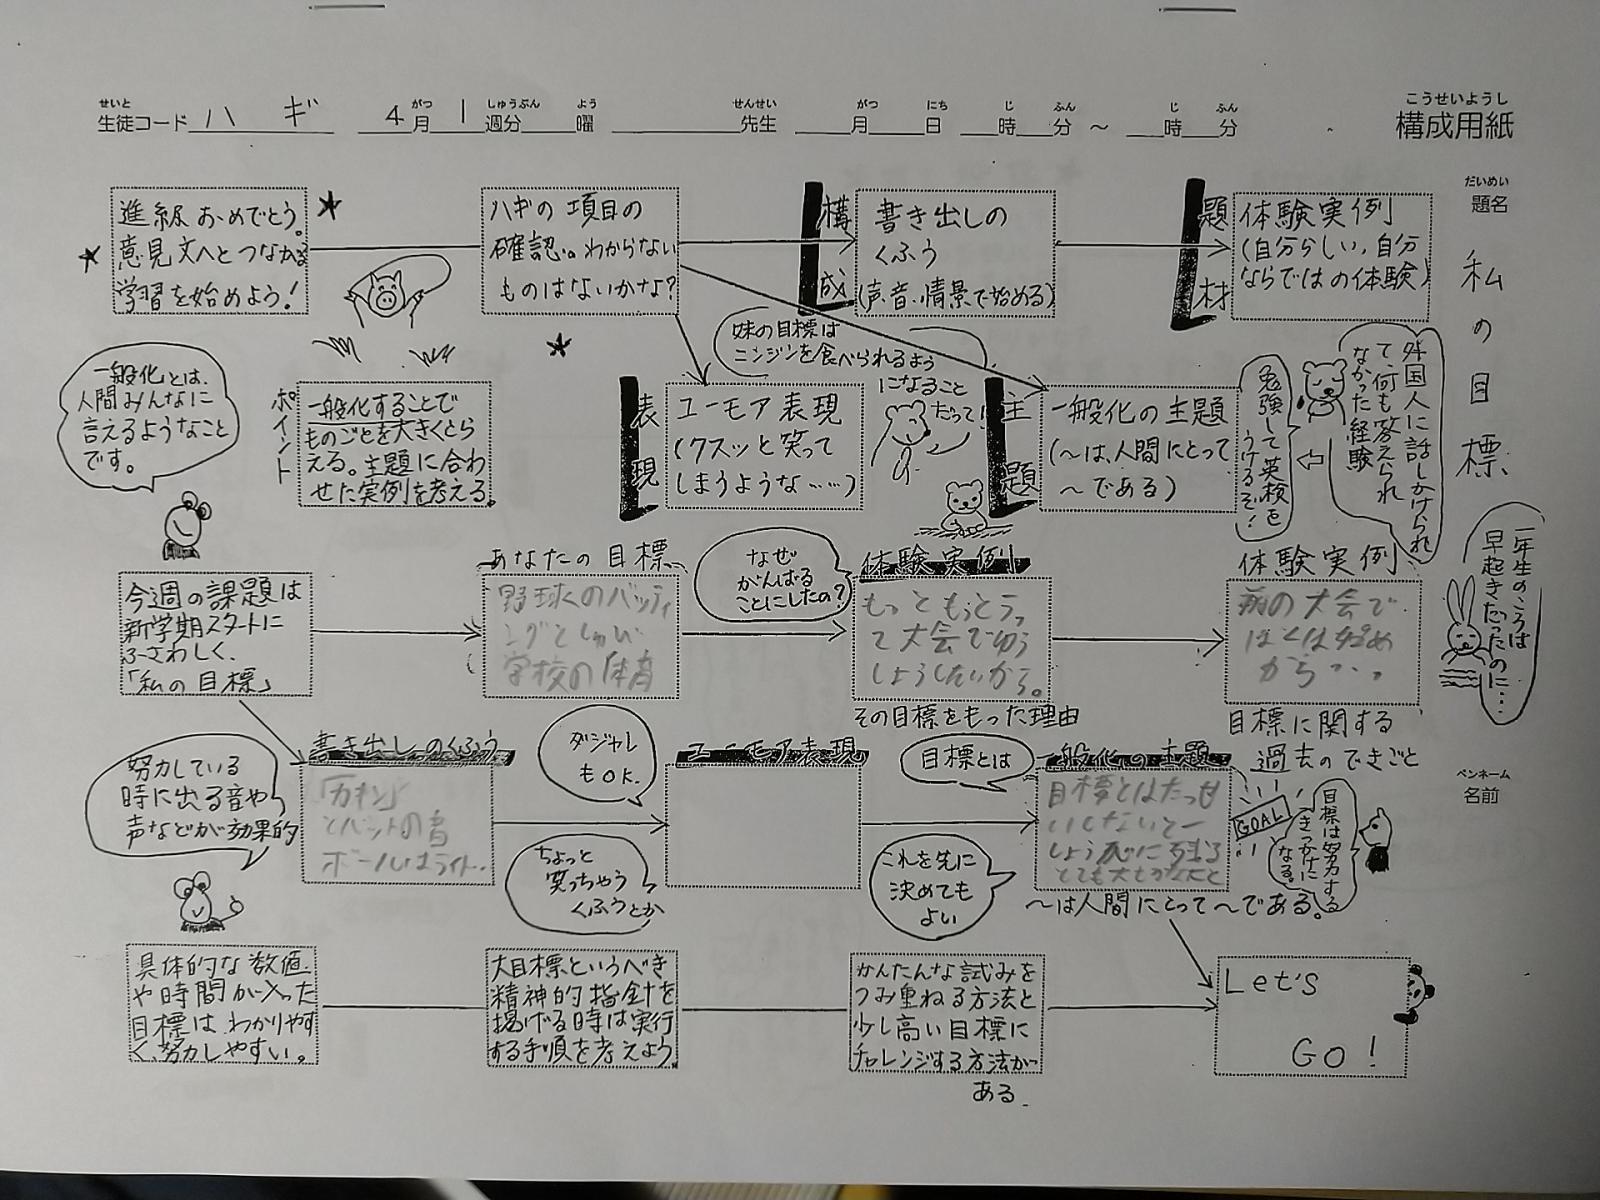 せいと がつ しゅうぶん よう せんせい がつ にち じ ふん じ ふん
生徒コード ハ ギ 4月 1週分 曜 先生 月 日 時 分 ～ 時 分
こうせいようし
構成用紙
だいめい
題名
私の目標
進級おめでとう。
意見文へとつながる
学習を始めよう!
ハギの項目の
確認。わからない
ものはないかな?
構成
書き出しの
くふう
(声、音、情景で始める)
題材
体験実例
(自分らしい,自分
ならではの体験)
一般化とは、
人間みんなに
言えるようなこと
です。
ポイント
一般化することで
ものごとを大きくとら
える。主題に合わ
せた実例を考える。
表現
ユーモア表現
(クスッと笑って
しまうような……)
妹の目標は
ニンジンを食べられるよう
になること
だって!
主題
一般化の主題
(～は、人間にとって
～である)
外国人に話しかけられ
て、何も答えられ
なかった経験
勉強して英検を
うけるぞ!
今週の課題は
新学期スタートに
ふさわしく、
「私の目標」
あなたの目標
野球のバッティ
ングと
学校の体育
なぜ
がんばる
ことにしたの?
体験実例
もっともっとう
って大会でゆう
しょうしたいから。
その目標をもった理由
体験実例
前の大会で
ぼくは始め
から・・・
目標に関する
過去のできごと
一年生のころは
早起きだったのに…
努力している
時に出る音や
声などが効果的
書き出しのくふう
「カキン」
とバットの音
ボールはライト‥
ダジャレ
もOK.
ちょっと
笑っちゃう
くふうとか
ユーモア表現
目標とは
これを先に
決めても
よい
一般化の主題
目標とはたっせ
いしないと一
しょう心に残る
とても大七
～は人間にとって～である。
GOAL
目標は努力する
きっかけに
なる。
ペンネーム
名前
具体的な数値
や時間が入った
目標は、わかりやす
く、努力しやすい。
大目標というべき
精神的指針を
掲げる時は実行
する手順を考えよう。
かんたんな試みを
つみ重ねる方法と
少し高い目標に
チャレンジする方法が
ある.
Let's
GO!